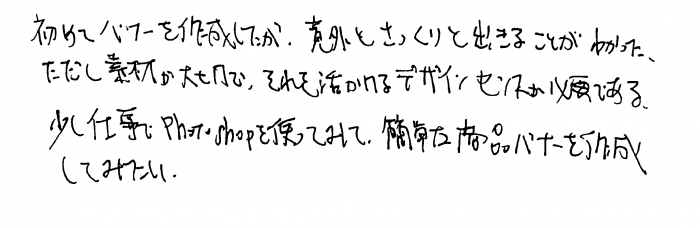 初めてバナーを作成したが、意外とさっくりと出きることがわかった、
ただし素材が大切で、それを活かけるデザインセンスが必要である、
少し仕事でPhotoshopを使ってみて、簡単な商品バナーを作成
してみたい.